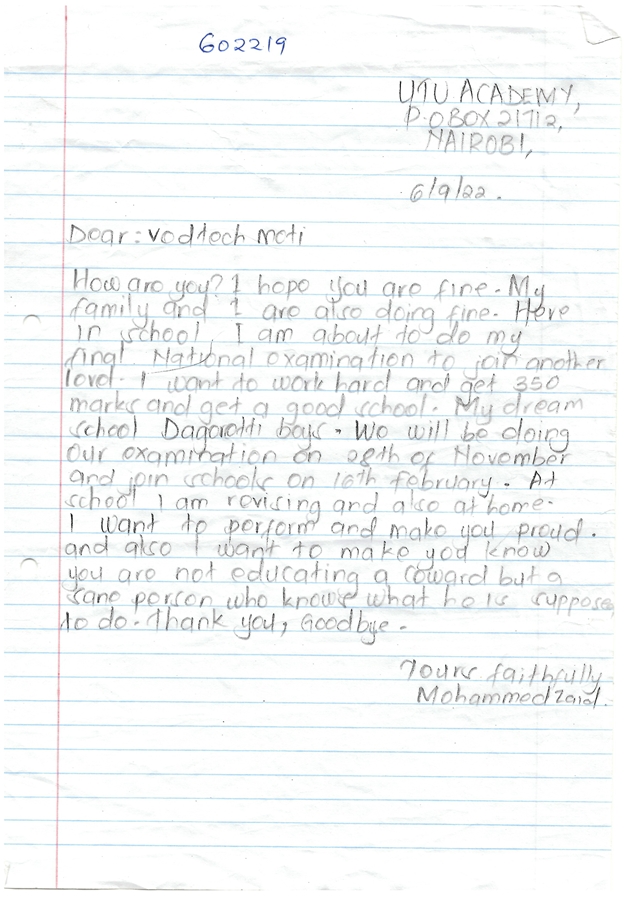 602219
UTU ACADEMY,
P.O BOX 21712,
NAIROBI,
6/9/22.
Dear: Vedtech Moti
How are you? I hope you are fine. My
family and I are also doing fine. Here
in school, I am about to do my
final National examination to join another
level. I want to work hard and get 350
marks and get a good school. My dream
school Dagoretti boys. We will be doing
our examination on 28th of November
and join schools on 16th february. At
school I am revising and also at home.
I want to perform and make you proud.
and also I want to make you know
you are not educating a coward but a
sane person who knows what he is suppose
to do. Thank you, Goodbye.
Yours faithfully
Mohammed Zaid.